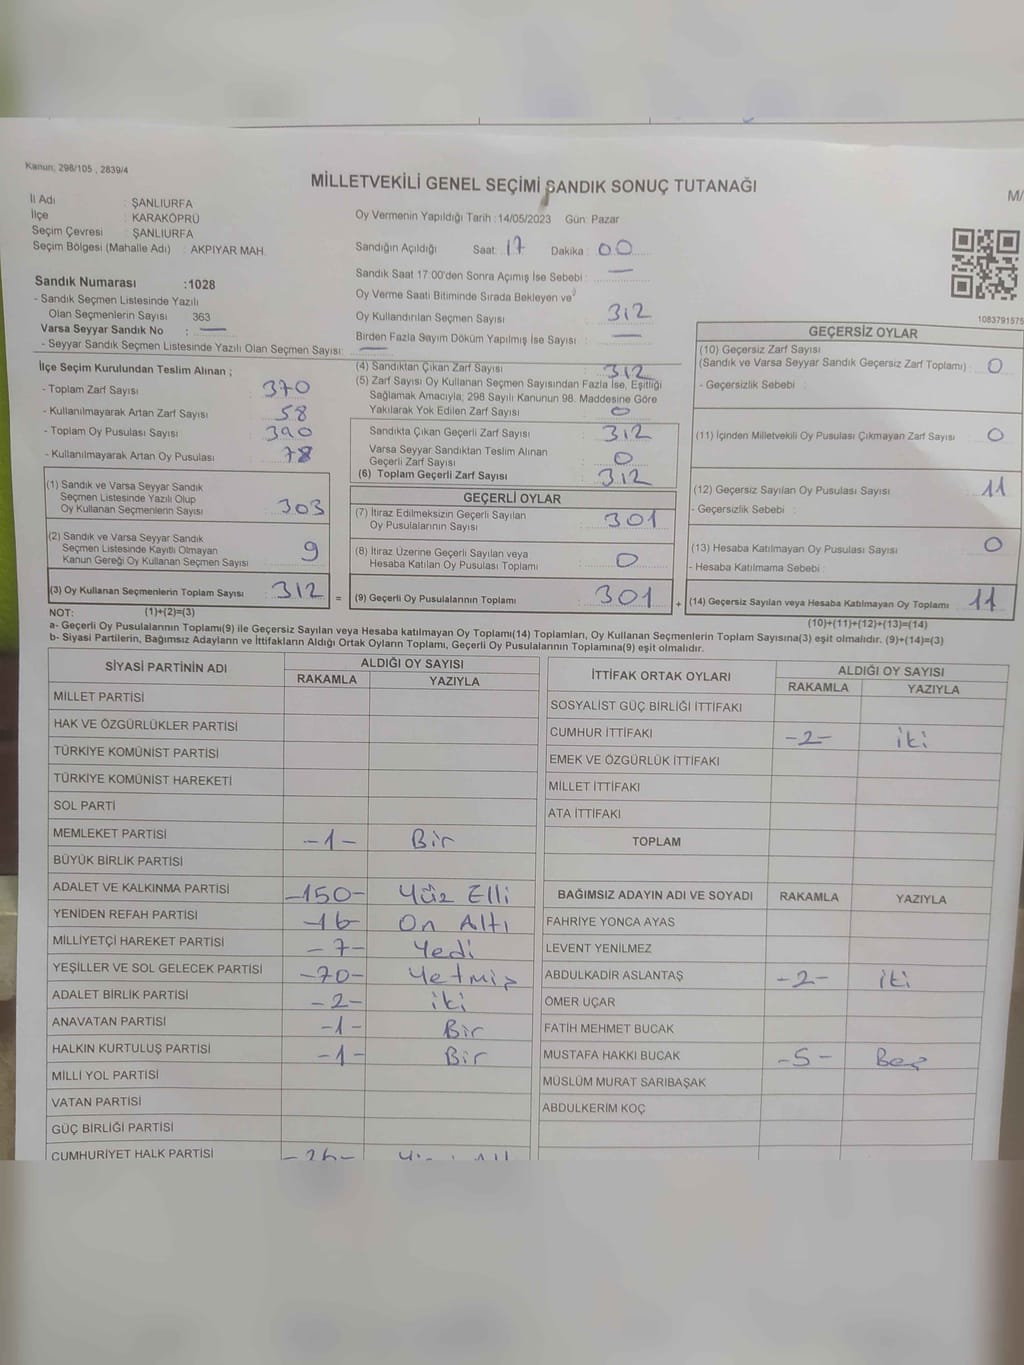 Kanun: 298/105 , 2839/4
MİLLETVEKİLİ GENEL SEÇİMİ SANDIK SONUÇ TUTANAĞI
M/
İl Adı : ŞANLIURFA
İlçe : KARAKÖPRÜ
Seçim Çevresi : ŞANLIURFA
Seçim Bölgesi (Mahalle Adı) : AKPIYAR MAH.
Sandık Numarası :1028
- Sandık Seçmen Listesinde Yazılı
Olan Seçmenlerin Sayısı 363
Varsa Seyyar Sandık No : —
- Seyyar Sandık Seçmen Listesinde Yazılı Olan Seçmen Sayısı: —
Oy Vermenin Yapıldığı Tarih : 14/05/2023 Gün: Pazar
Sandığın Açıldığı Saat: 17 Dakika : 00
Sandık Saat 17:00'den Sonra Açılmış İse Sebebi : —
Oy Verme Saati Bitiminde Sırada Bekleyen ve
Oy Kullandırılan Seçmen Sayısı : 312
Birden Fazla Sayım Döküm Yapılmış İse Sayısı : —
1083791575
İlçe Seçim Kurulundan Teslim Alınan ;
- Toplam Zarf Sayısı : 370
- Kullanılmayarak Artan Zarf Sayısı : 58
- Toplam Oy Pusulası Sayısı : 390
- Kullanılmayarak Artan Oy Pusulası : 78
(1) Sandık ve Varsa Seyyar Sandık
Seçmen Listesinde Yazılı Olup
Oy Kullanan Seçmenlerin Sayısı : 303
(2) Sandık ve Varsa Seyyar Sandık
Seçmen Listesinde Kayıtlı Olmayan
Kanun Gereği Oy Kullanan Seçmen Sayısı : 9
(3) Oy Kullanan Seçmenlerin Toplam Sayısı : 312 =
(4) Sandıktan Çıkan Zarf Sayısı : 312
(5) Zarf Sayısı Oy Kullanan Seçmen Sayısından Fazla İse, Eşitliği
Sağlamak Amacıyla; 298 Sayılı Kanunun 98. Maddesine Göre
Yakılarak Yok Edilen Zarf Sayısı : 0
Sandıkta Çıkan Geçerli Zarf Sayısı : 312
Varsa Seyyar Sandıktan Teslim Alınan
Geçerli Zarf Sayısı : 0
(6) Toplam Geçerli Zarf Sayısı : 312
GEÇERLİ OYLAR
(7) İtiraz Edilmeksizin Geçerli Sayılan
Oy Pusulalarının Sayısı : 301
(8) İtiraz Üzerine Geçerli Sayılan veya
Hesaba Katılan Oy Pusulası Toplamı : 0
(9) Geçerli Oy Pusulalarının Toplamı : 301 +
GEÇERSİZ OYLAR
(10) Geçersiz Zarf Sayısı
(Sandık ve Varsa Seyyar Sandık Geçersiz Zarf Toplamı) : 0
- Geçersizlik Sebebi :
(11) İçinden Milletvekili Oy Pusulası Çıkmayan Zarf Sayısı : 0
(12) Geçersiz Sayılan Oy Pusulası Sayısı : 11
- Geçersizlik Sebebi :
(13) Hesaba Katılmayan Oy Pusulası Sayısı : 0
- Hesaba Katılmama Sebebi :
(14) Geçersiz Sayılan veya Hesaba Katılmayan Oy Toplamı : 11
NOT: (1)+(2)=(3) (10)+(11)+(12)+(13)=(14)
a- Geçerli Oy Pusulalarının Toplamı(9) ile Geçersiz Sayılan veya Hesaba katılmayan Oy Toplamı(14) Toplamları, Oy Kullanan Seçmenlerin Toplam Sayısına(3) eşit olmalıdır. (9)+(14)=(3)
b- Siyasi Partilerin, Bağımsız Adayların ve İttifakların Aldığı Ortak Oyların Toplamı, Geçerli Oy Pusulalarının Toplamına(9) eşit olmalıdır.
SİYASİ PARTİNİN ADI ALDIĞI OY SAYISI
RAKAMLA YAZIYLA
MİLLET PARTİSİ
HAK VE ÖZGÜRLÜKLER PARTİSİ
TÜRKİYE KOMÜNİST PARTİSİ
TÜRKİYE KOMÜNİST HAREKETİ
SOL PARTİ
MEMLEKET PARTİSİ -1- Bir
BÜYÜK BİRLİK PARTİSİ
ADALET VE KALKINMA PARTİSİ -150- Yüz Elli
YENİDEN REFAH PARTİSİ -16- On Altı
MİLLİYETÇİ HAREKET PARTİSİ -7- Yedi
YEŞİLLER VE SOL GELECEK PARTİSİ -70- Yetmiş
ADALET BİRLİK PARTİSİ -2- iki
ANAVATAN PARTİSİ -1- Bir
HALKIN KURTULUŞ PARTİSİ -1- Bir
MİLLİ YOL PARTİSİ
VATAN PARTİSİ
GÜÇ BİRLİĞİ PARTİSİ
CUMHURİYET HALK PARTİSİ -26-
İTTİFAK ORTAK OYLARI ALDIĞI OY SAYISI
RAKAMLA YAZIYLA
SOSYALİST GÜÇ BİRLİĞİ İTTİFAKI
CUMHUR İTTİFAKI -2- iki
EMEK VE ÖZGÜRLÜK İTTİFAKI
MİLLET İTTİFAKI
ATA İTTİFAKI
TOPLAM
BAĞIMSIZ ADAYIN ADI VE SOYADI RAKAMLA YAZIYLA
FAHRİYE YONCA AYAS
LEVENT YENİLMEZ
ABDULKADİR ASLANTAŞ -2- iki
ÖMER UÇAR
FATİH MEHMET BUCAK
MUSTAFA HAKKI BUCAK -5- Beş
MÜSLÜM MURAT SARIBAŞAK
ABDULKERİM KOÇ